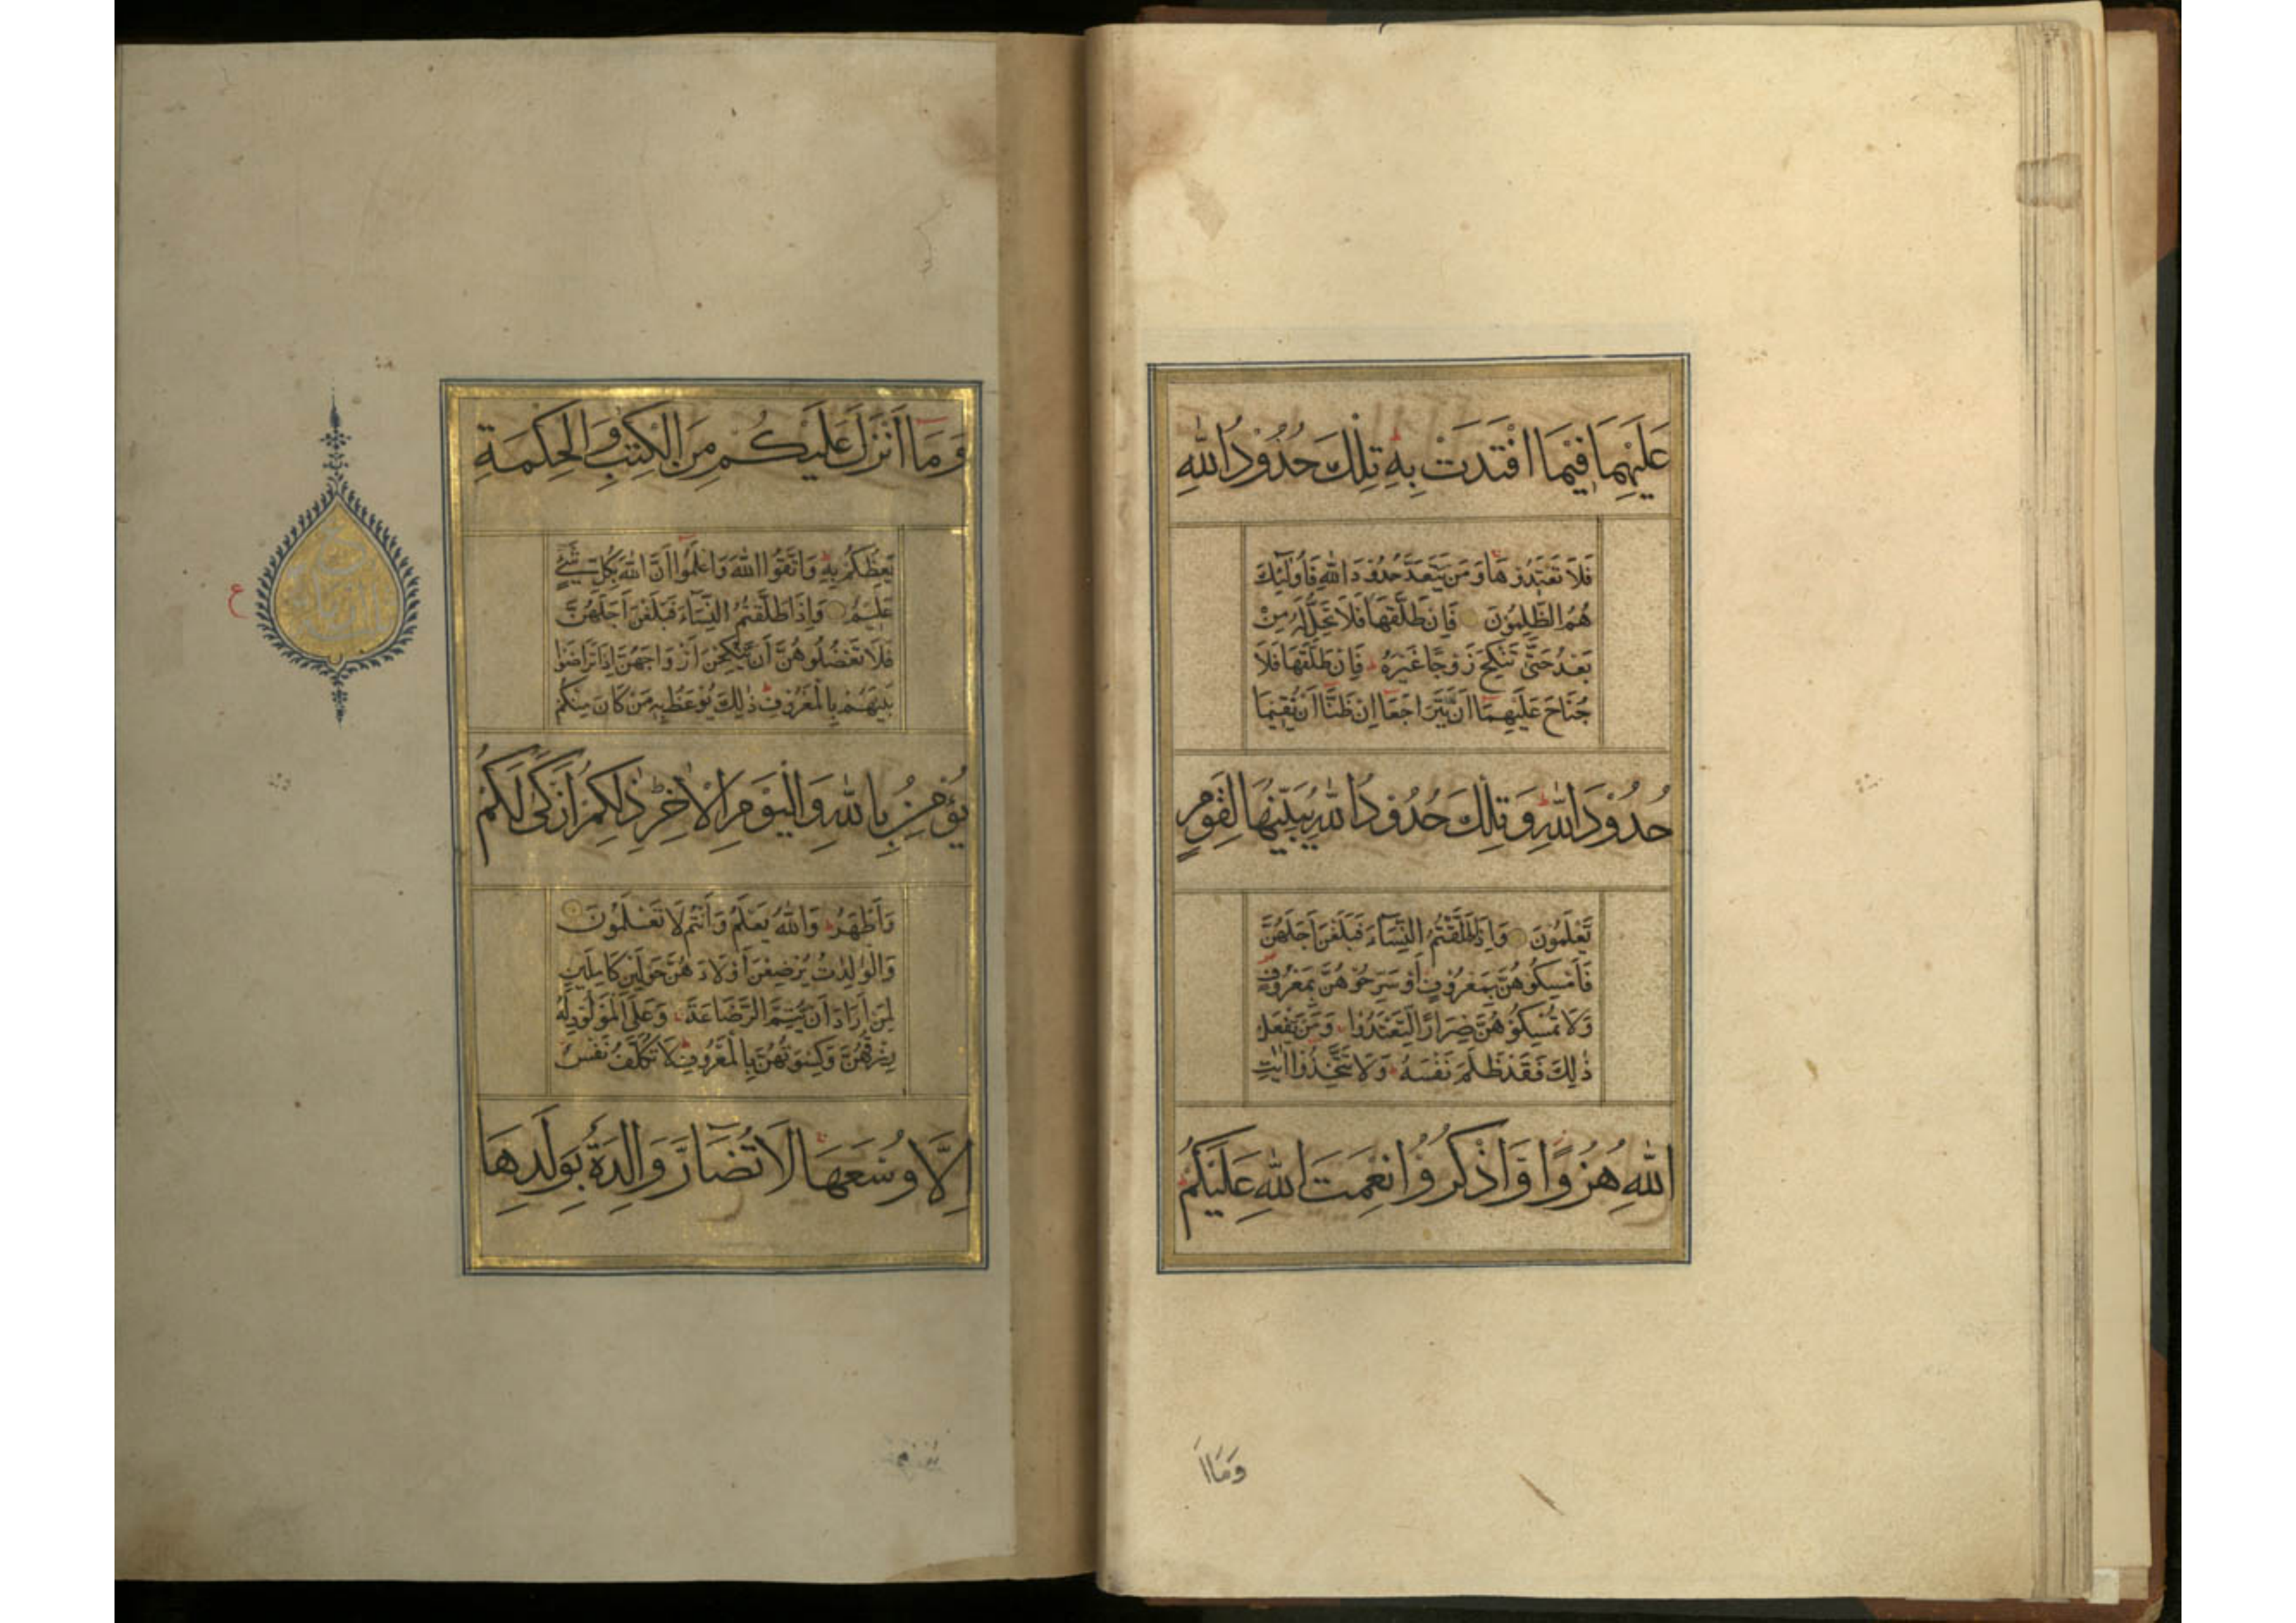 عَلَيْهِمَا فِيْمَا افْتَدَتْ بِهٖ تِلْكَ حُدُوْدُ اللّٰهِ
فَلَا تَعْتَدُوْهَا وَمَنْ يَتَعَدَّ حُدُوْدَ اللّٰهِ فَاُولٰٓئِكَ
هُمُ الظّٰلِمُوْنَ فَاِنْ طَلَّقَهَا فَلَا تَحِلُّ لَهُ مِنْ
بَعْدُ حَتّٰى تَنْكِحَ زَوْجًا غَيْرَهُ فَاِنْ طَلَّقَهَا فَلَا
جُنَاحَ عَلَيْهِمَا اَنْ يَّتَرَاجَعَا اِنْ ظَنَّا اَنْ يُّقِيْمَا
حُدُوْدَ اللّٰهِ وَتِلْكَ حُدُوْدُ اللّٰهِ يُبَيِّنُهَا لِقَوْمٍ
تَعْلَمُوْنَ وَاِذَا طَلَّقْتُمُ النِّسَآءَ فَبَلَغْنَ اَجَلَهُنَّ
فَاَمْسِكُوْهُنَّ بِمَعْرُوْفٍ اَوْ سَرِّحُوْهُنَّ بِمَعْرُوْفٍ
وَلَا تُمْسِكُوْهُنَّ ضِرَارًا لِّتَعْتَدُوْا وَمَنْ يَّفْعَلْ
ذٰلِكَ فَقَدْ ظَلَمَ نَفْسَهُ وَلَا تَتَّخِذُوْا اٰيٰتِ
اللّٰهِ هُزُوًا وَّاذْكُرُوْا نِعْمَتَ اللّٰهِ عَلَيْكُمْ
وَمَا اَ
وَمَا اَنْزَلَ عَلَيْكُمْ مِنَ الْكِتٰبِ وَالْحِكْمَةِ
يَعِظُكُمْ بِهٖ وَاتَّقُوا اللّٰهَ وَاعْلَمُوْا اَنَّ اللّٰهَ بِكُلِّ شَيْءٍ
عَلِيْمٌ وَاِذَا طَلَّقْتُمُ النِّسَآءَ فَبَلَغْنَ اَجَلَهُنَّ
فَلَا تَعْضُلُوْهُنَّ اَنْ يَّنْكِحْنَ اَزْوَاجَهُنَّ اِذَا تَرَاضَوْا
بَيْنَهُمْ بِالْمَعْرُوْفِ ذٰلِكَ يُوْعَظُ بِهٖ مَنْ كَانَ مِنْكُمْ
يُؤْمِنُ بِاللّٰهِ وَالْيَوْمِ الْاٰخِرِ ذٰلِكُمْ اَزْكٰى لَكُمْ
وَاَطْهَرُ وَاللّٰهُ يَعْلَمُ وَاَنْتُمْ لَا تَعْلَمُوْنَ
وَالْوٰلِدٰتُ يُرْضِعْنَ اَوْلَادَهُنَّ حَوْلَيْنِ كَامِلَيْنِ
لِمَنْ اَرَادَ اَنْ يُّتِمَّ الرَّضَاعَةَ وَعَلَى الْمَوْلُوْدِ لَهُ
رِزْقُهُنَّ وَكِسْوَتُهُنَّ بِالْمَعْرُوْفِ لَا تُكَلَّفُ نَفْسٌ
اِلَّا وُسْعَهَا لَا تُضَآرَّ وَالِدَةٌ بِوَلَدِهَا
ع